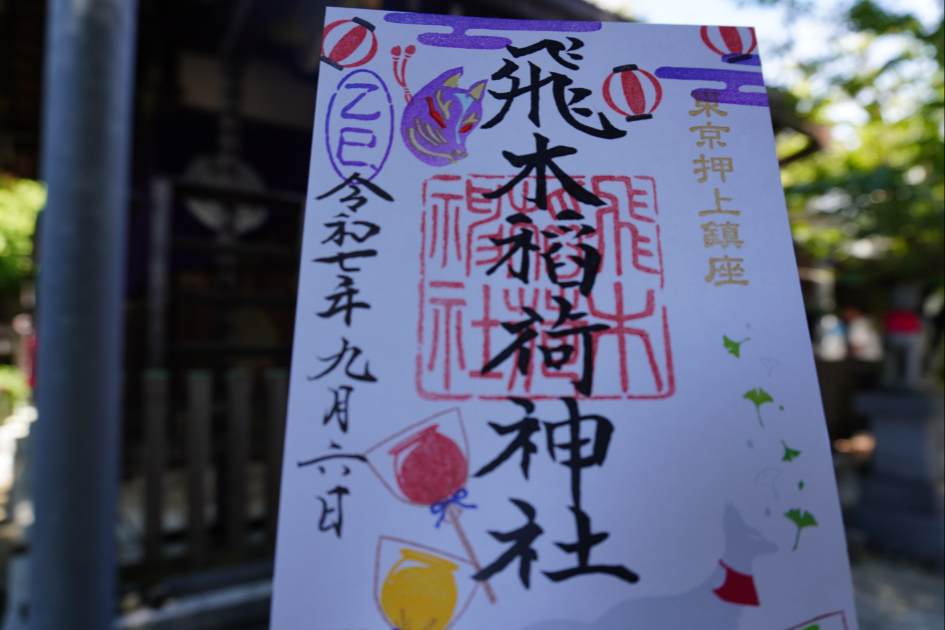 東京押上鎮座
飛木稲荷神社
飛木
稲荷
神社
乙巳
令和七年九月六日